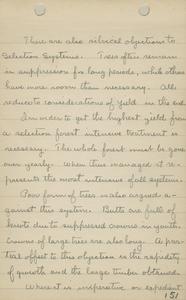 There are also silvical objections to
Selection Systems. Trees often remain
in suppression for long periods, while others
have more room than necessary. All
reduce to considerations of yield in the end.
In order to get the highest yield from
a selection forest intensive treatment is
necessary. The whole forest must be gone
over yearly. When thus managed it re-
presents the most intensive of all systems.
Poor form of trees is also argued a-
gainst this system. Butts are full of
knots due to suppressed crowns in youth.
Crowns of large trees are also long. A par-
tial offset to this objection is the rapidity
of growth and the large timber obtained.
Where it is imperative or expedient
151